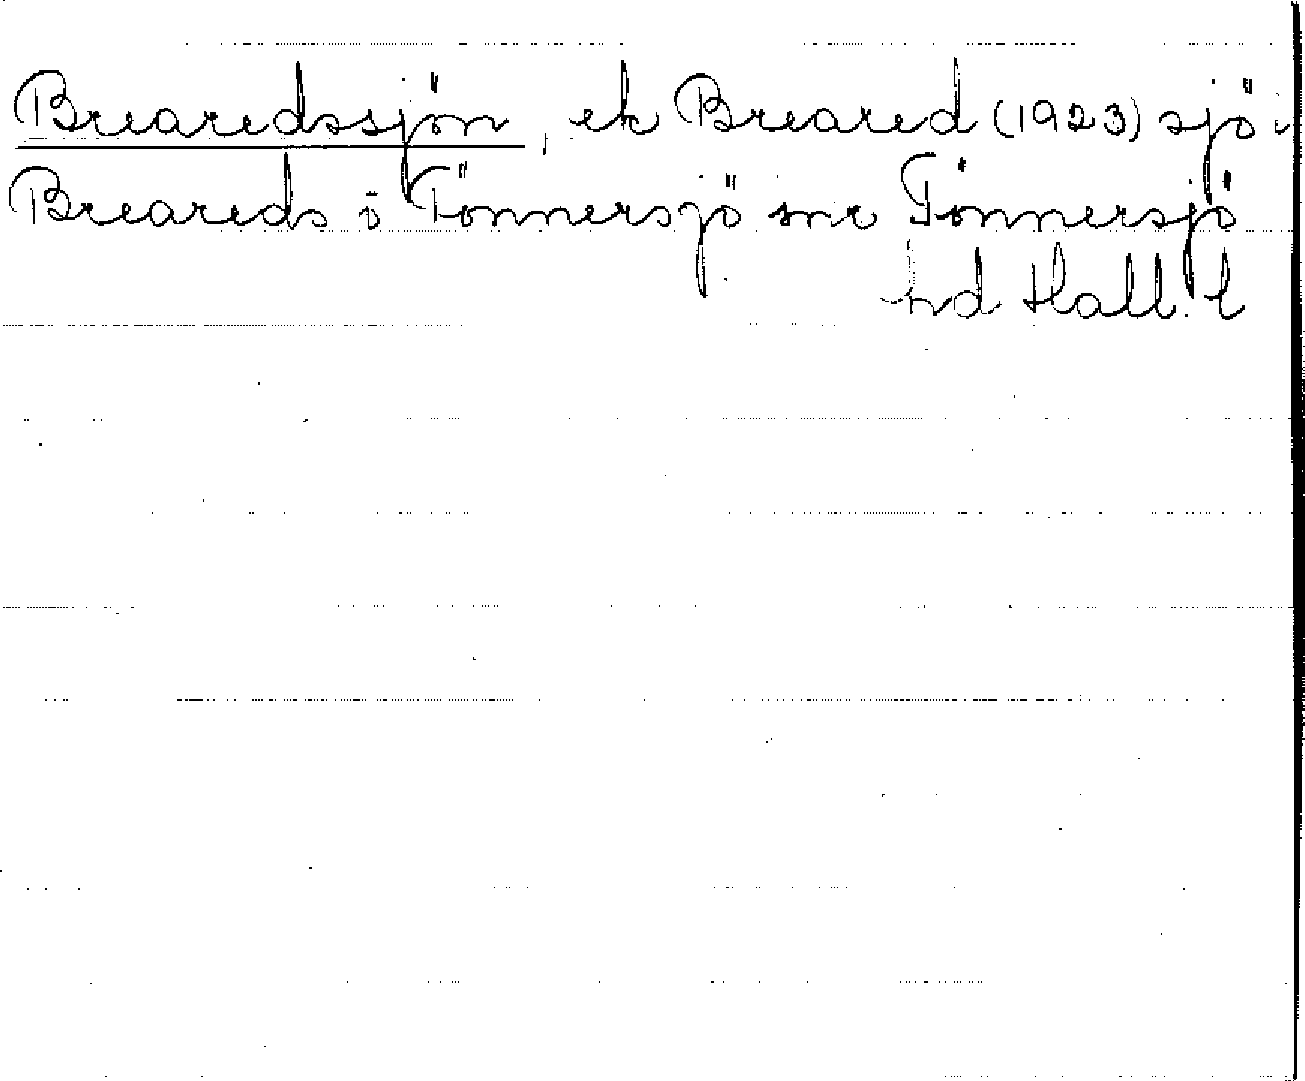 Brearedssjön, ek Breared (1923) sjö i
Breareds o Tönnersjö snr Tönnersjö
hd Hall. l